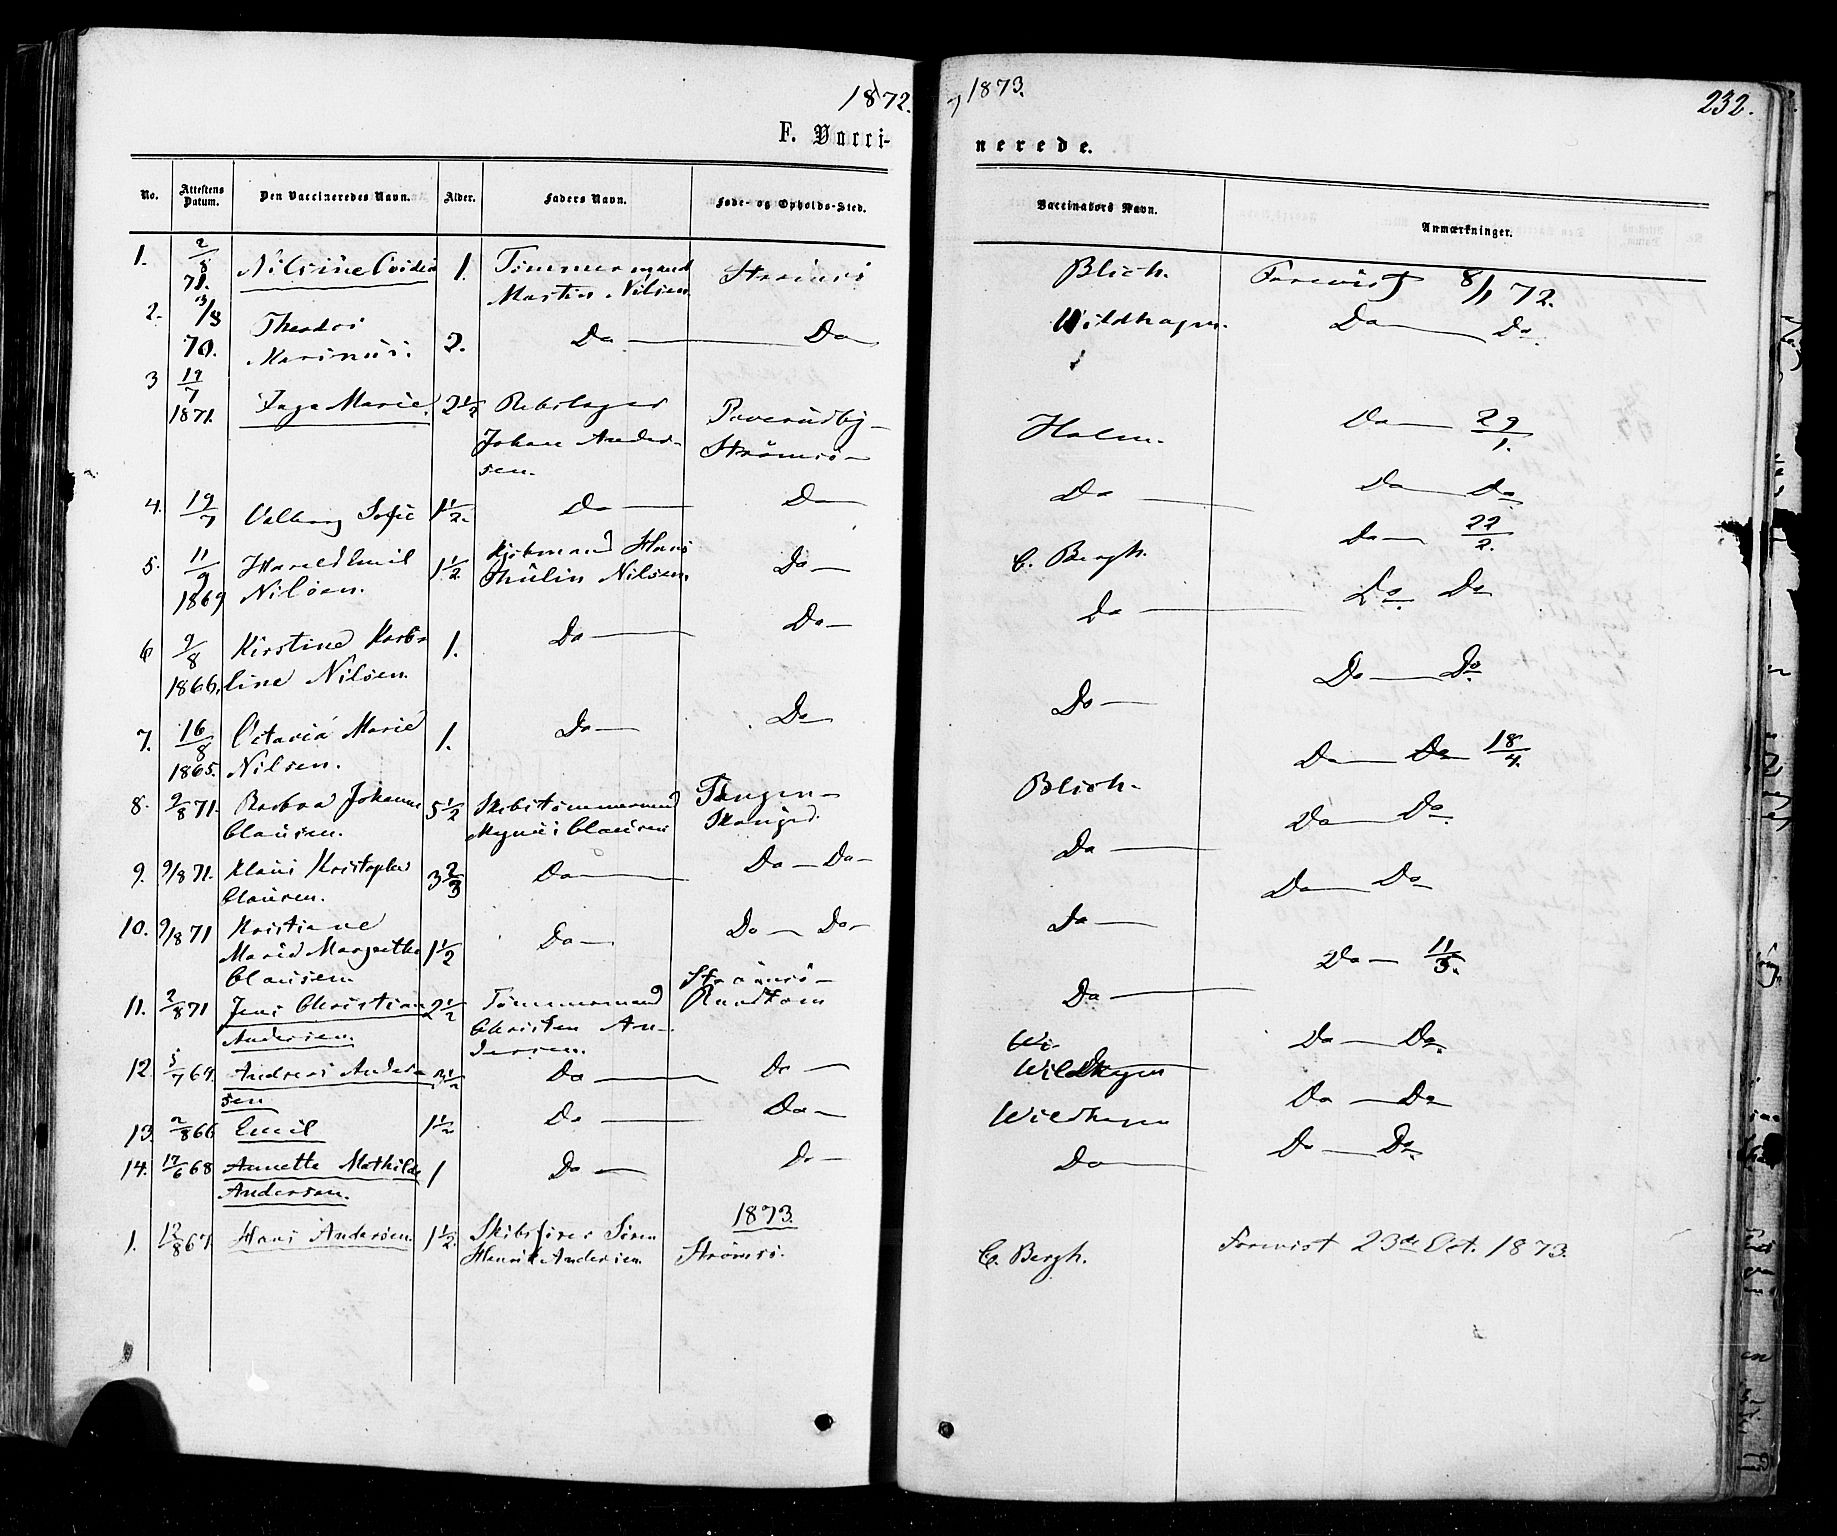 1872.
1873.
232.
F. Vacci-
nerede.
No. Attestens Datum. Den Vaccineredes Navn. Alder. Faders Navn. Føde- og Opholds-Sted. Vaccinators Navn. Anmærkninger.
1. 2/8 71. Nilsine 1. Tømmermand Martin Nilsen Strømsø Blich. Forevist 8/1 72.
2. 3/8 70. Theodor Marinus. 2. Do Do Wildhagen. Do Do.
3 19/7 1871. Inga Marie. 2 1/2 Rebslager Johan Andersen. Strømsø Holm. Do 29/1.
4. 19/7 Valborg Sofie 1 1/2. Do Do Do Do Do
5. 11/9 1869 Harald Emil Nilsen. 1 1/2 Kjøbmand Hans Thulin Nilsen. Do C. Bergh. Do 22/2.
6 9/8 1866. Kirstine Karoline Nilsen. 1. Do Do Do Do. Do
7. 16/8 1865. Octavia Marie Nilsen. 1. Do Do Do Do Do.
8. 9/8 71. Barbra Johanne Clausen. 5 1/2 Skibstømmermand Clausen Tangen Blich. Do Do 18/4.
9. 9/8 71. Klaus Kristopher Clausen. 3 2/3 Do Do Do Do Do Do.
10. 9/8 71 Kristiane Marie Margrethe Clausen 1 1/2 Do Do Do Do Do Do
11. 2/8 71 Jens Christian Andersen. 2 1/2 Tømmermand Christen Andersen. Strømsø Rundtom Do Do 11/5.
12. 5/7 69. Andreas Andersen 3 1/2 Do Do Wi- Wildhagen Do Do.
13. 2/8 66 Emil 1 1/2 Do Do Wildhagen Do Do
14. 17/6 68 Annette Mathilde Andersen. 1 Do Do Do Do Do.
1873.
1. 12/8 67. Hans Andersen. 1 1/2. Skibsfører Søren Henrik Andersen. Strømsø. C. Bergh. Forevist 23de Oct. 1873.